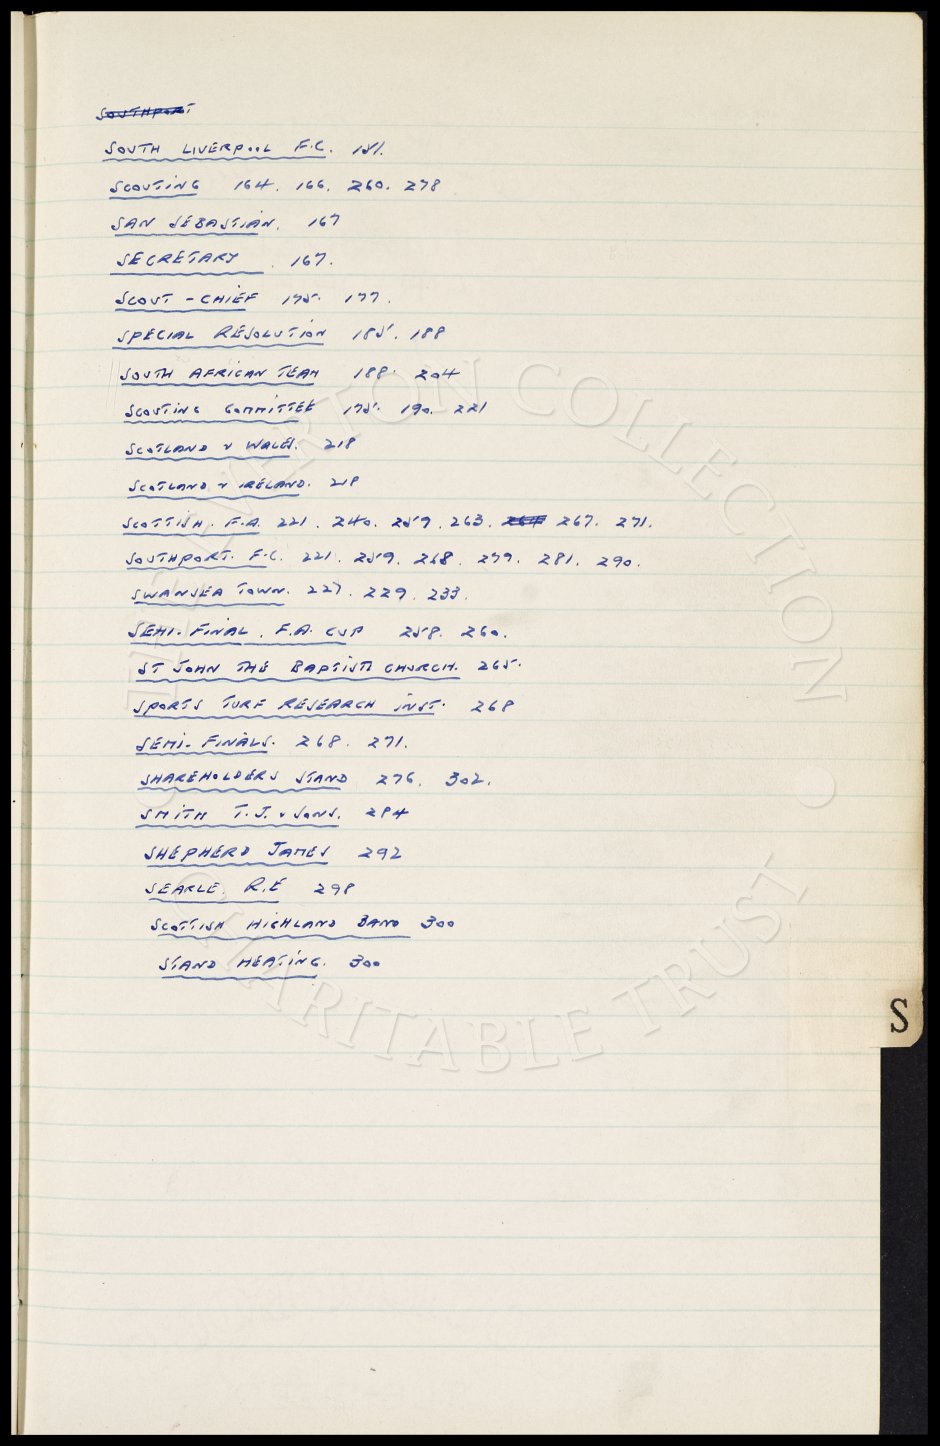 SOUTHPORT
SOUTH LIVERPOOL F.C. 151.
SCOUTING 164. 166. 260. 278
SAN SEBASTIAN. 167
SECRETARY . 167.
SCOUT - CHIEF 175. 177.
SPECIAL RESOLUTION 185. 188
SOUTH AFRICAN TEAM 188. 204
SCOUTING COMMITTEE 175. 190. 221
SCOTLAND v WALES. 218
SCOTLAND v IRELAND. 218
SCOTTISH. F.A. 221. 240. 259. 263. 264 267. 271.
SOUTHPORT. F.C. 221. 259. 268. 279. 281. 290.
SWANSEA TOWN. 227. 229. 233.
SEMI-FINAL. F.A. CUP 258. 260.
ST JOHN THE BAPTIST CHURCH. 265.
SPORTS TURF RESEARCH INST. 268
SEMI-FINALS. 268. 271.
SHAREHOLDERS STAND 276. 302.
SMITH T.J. & SONS. 284
SHEPHERD JAMES 292
SEARLE. R.E 298
SCOTTISH HIGHLAND BAND 300
STAND HEATING. 300
S
THE EVERTON COLLECTION
CHARITABLE TRUST